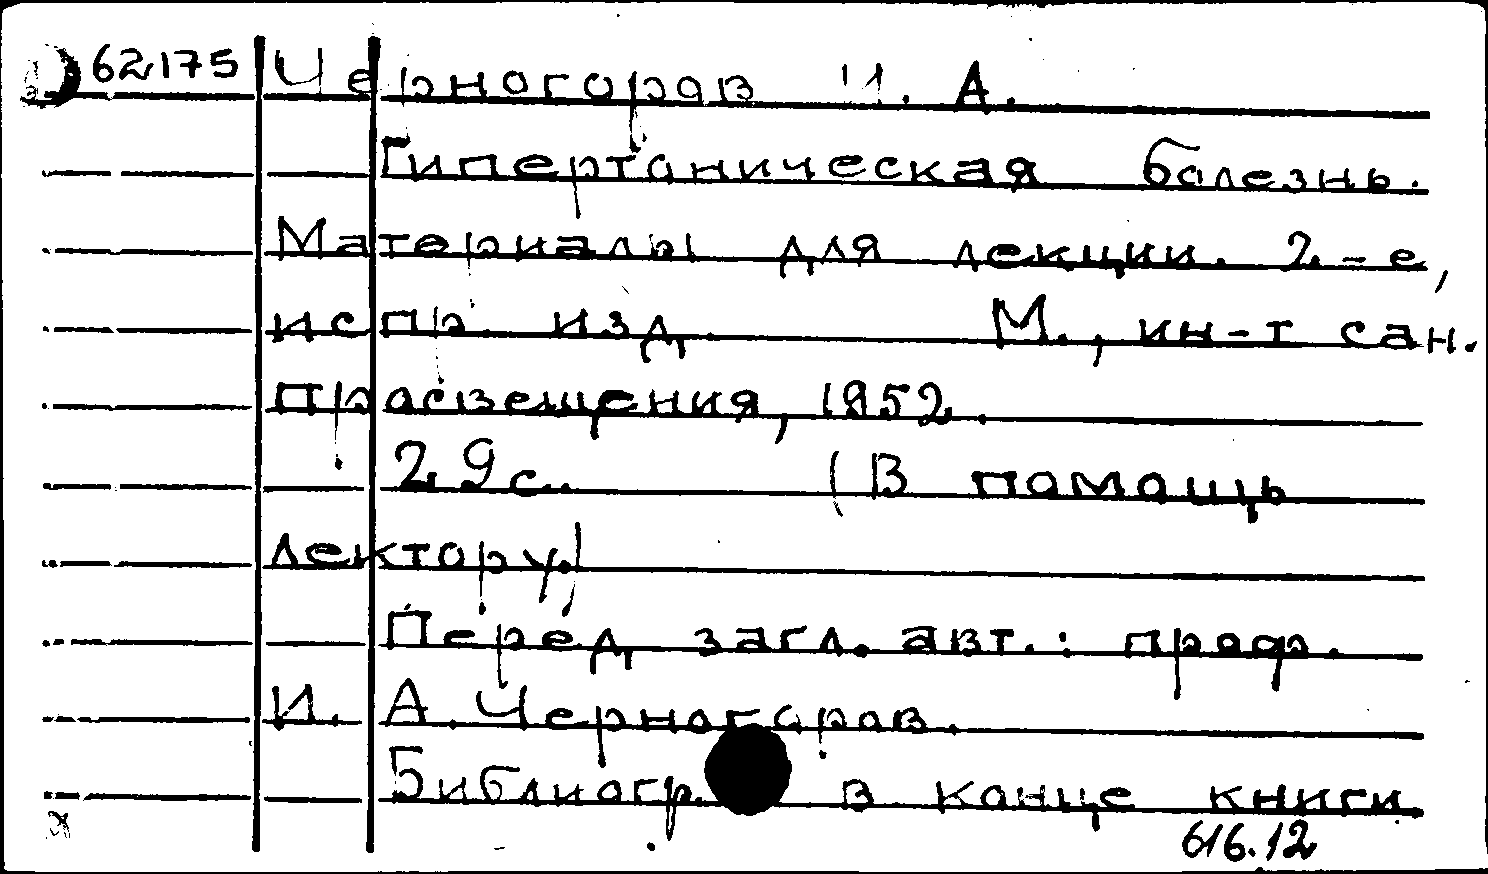 62175 Черногоров И. А.
Гипертоническая болезнь.
Материалы для лекции. 2-е,
испр. изд. М., ин-т сан.
просвещения, 1952.
29с. (В помощь
лектору)
Перед загл. авт.: проф.
И. А. Черногоров.
Библиогр. в конце книги.
616.12